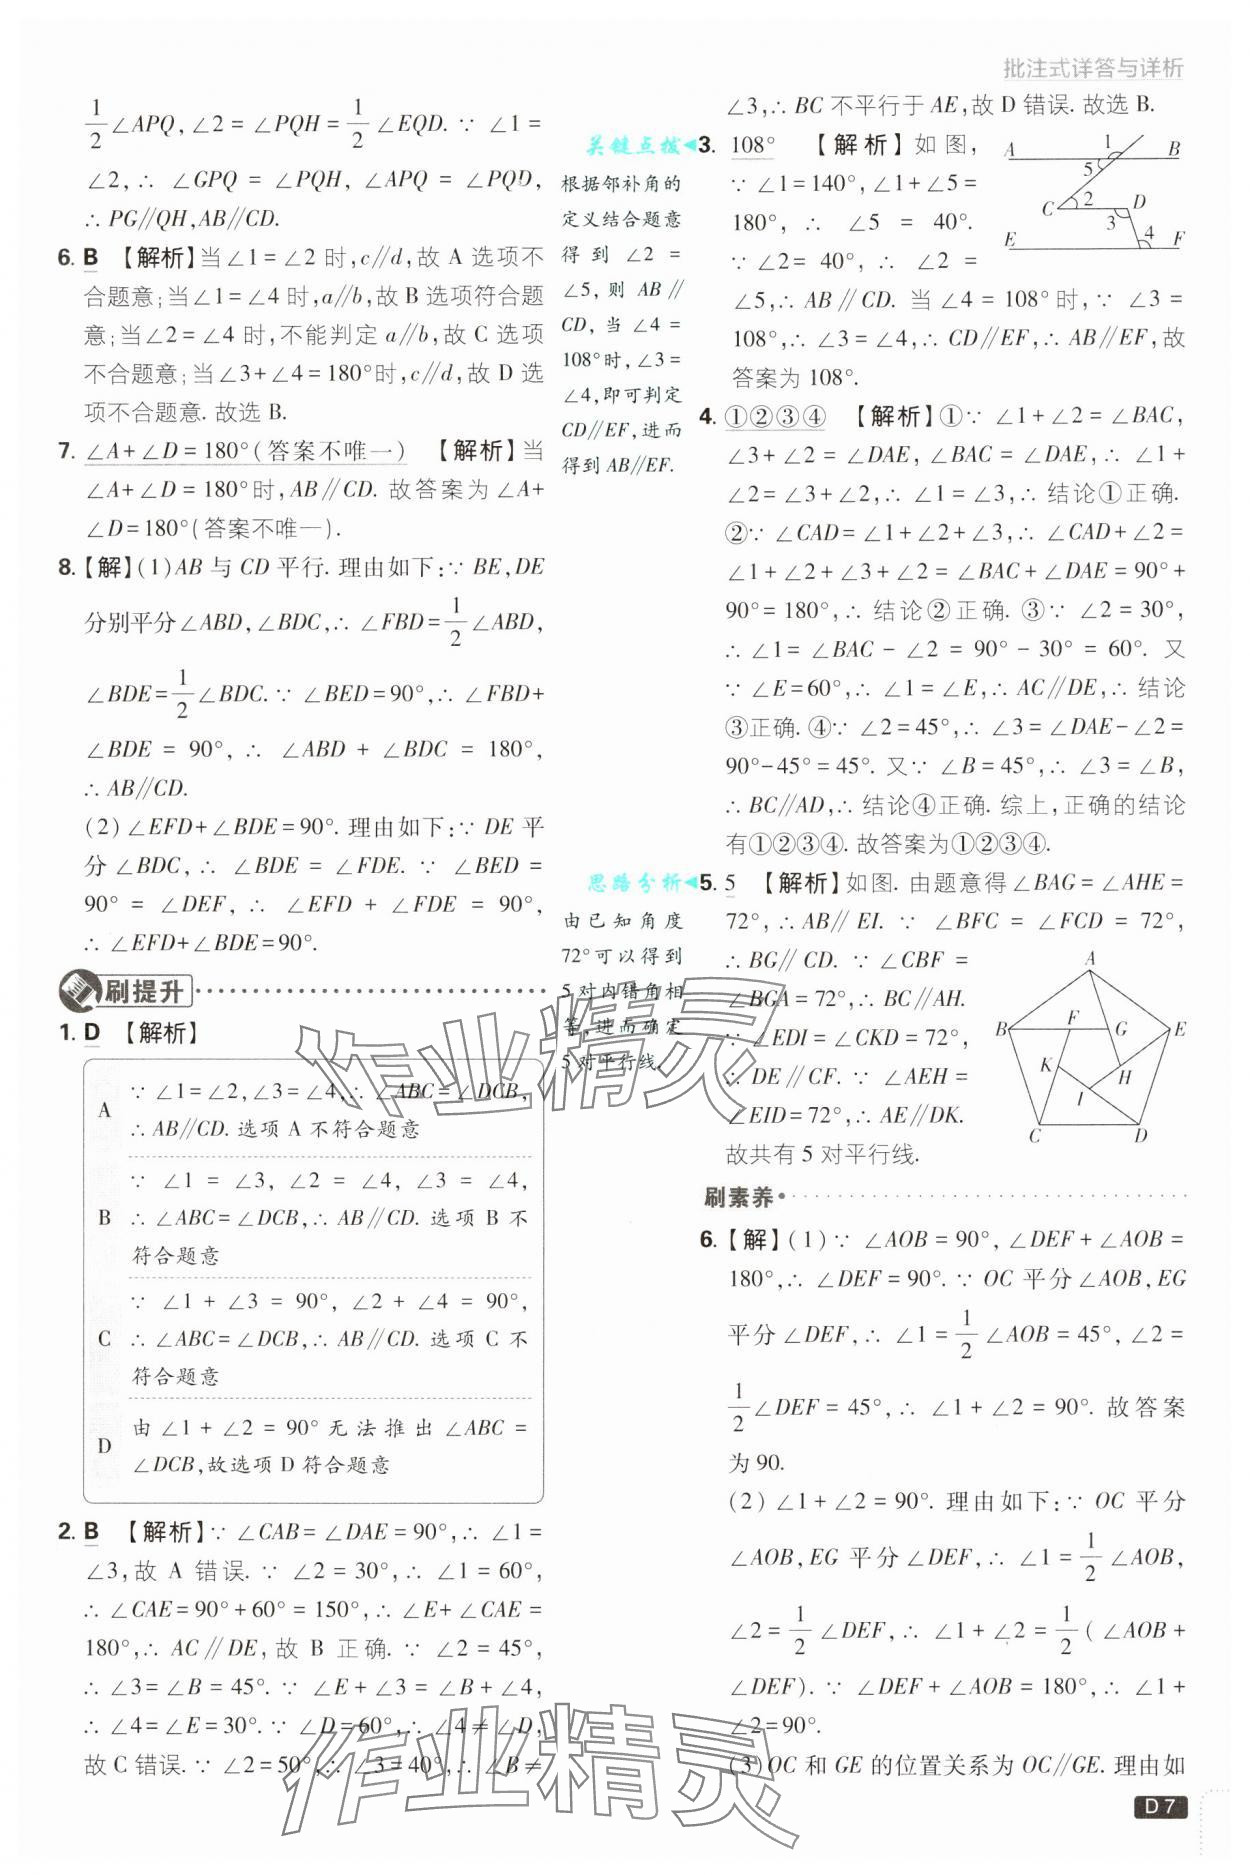 批注式详答与详析
1/2∠APQ,∠2=∠PQH=1/2∠EQD.∵∠1=
∠2,∴∠GPQ=∠PQH,∠APQ=∠PQD,
∴PG∥QH,AB∥CD.
6. B 【解析】当∠1=∠2时,c∥d,故A选项不
合题意;当∠1=∠4时,a∥b,故B选项符合题
意;当∠2=∠4时,不能判定a∥b,故C选项
不合题意;当∠3+∠4=180°时,c∥d,故D选
项不合题意.故选B.
7. ∠A+∠D=180°(答案不唯一) 【解析】当
∠A+∠D=180°时,AB∥CD.故答案为∠A+
∠D=180°(答案不唯一).
8.【解】(1)AB与CD平行.理由如下:∵BE,DE
分别平分∠ABD,∠BDC,∴∠FBD=1/2∠ABD,
∠BDE=1/2∠BDC.∵∠BED=90°,∴∠FBD+
∠BDE=90°,∴∠ABD+∠BDC=180°,
∴AB∥CD.
(2)∠EFD+∠BDE=90°.理由如下:∵DE平
分∠BDC,∴∠BDE=∠FDE.∵∠BED=
90°=∠DEF,∴∠EFD+∠FDE=90°,
∴∠EFD+∠BDE=90°.
刷提升
1. D 【解析】
A
∵∠1=∠2,∠3=∠4,∴∠ABC=∠DCB,
∴AB∥CD.选项A不符合题意
B
∵∠1=∠3,∠2=∠4,∠3=∠4,
∴∠ABC=∠DCB,∴AB∥CD.选项B不
符合题意
C
∵∠1+∠3=90°,∠2+∠4=90°,
∴∠ABC=∠DCB,∴AB∥CD.选项C不
符合题意
D
由∠1+∠2=90°无法推出∠ABC=
∠DCB,故选项D符合题意
2. B 【解析】∵∠CAB=∠DAE=90°,∴∠1=
∠3,故A错误.∵∠2=30°,∴∠1=60°,
∴∠CAE=90°+60°=150°,∴∠E+∠CAE=
180°,∴AC∥DE,故B正确.∵∠2=45°,
∴∠3=∠B=45°.∵∠E+∠3=∠B+∠4,
∴∠4=∠E=30°.∵∠D=60°,∴∠4≠∠D,
故C错误.∵∠2=50°,∴∠3=40°,∴∠B≠
关键点拨
根据邻补角的
定义结合题意
得到∠2=
∠5,则AB∥
CD,当∠4=
108°时,∠3=
∠4,即可判定
CD∥EF,进而
得到AB∥EF.
思路分析
由已知角度
72°可以得到
5对内错角相
等,进而确定
5对平行线.
∠3,∴BC不平行于AE,故D错误.故选B.
3. 108° 【解析】如图,
∵∠1=140°,∠1+∠5=
180°,∴∠5=40°.
∵∠2=40°,∴∠2=
∠5,∴AB∥CD.当∠4=108°时,∵∠3=
108°,∴∠3=∠4,∴CD∥EF,∴AB∥EF,故
答案为108°.
A 1 B
5
C 2 D
3 4
E F
4. ①②③④ 【解析】①∵∠1+∠2=∠BAC,
∠3+∠2=∠DAE,∠BAC=∠DAE,∴∠1+
∠2=∠3+∠2,∴∠1=∠3,∴结论①正确.
②∵∠CAD=∠1+∠2+∠3,∴∠CAD+∠2=
∠1+∠2+∠3+∠2=∠BAC+∠DAE=90°+
90°=180°,∴结论②正确.③∵∠2=30°,
∴∠1=∠BAC-∠2=90°-30°=60°.又
∵∠E=60°,∴∠1=∠E,∴AC∥DE,∴结论
③正确.④∵∠2=45°,∴∠3=∠DAE-∠2=
90°-45°=45°.又∵∠B=45°,∴∠3=∠B,
∴BC∥AD,∴结论④正确.综上,正确的结论
有①②③④.故答案为①②③④.
5. 5 【解析】如图.由题意得∠BAG=∠AHE=
72°,∴AB∥EI.∵∠BFC=∠FCD=72°,
∴BG∥CD.∵∠CBF=
∠BGA=72°,∴BC∥AH.
∵∠EDI=∠CKD=72°,
∴DE∥CF.∵∠AEH=
∠EID=72°,∴AE∥DK.
故共有5对平行线.
A
B F G E
K H
I
C D
刷素养
6.【解】(1)∵∠AOB=90°,∠DEF+∠AOB=
180°,∴∠DEF=90°.∵OC平分∠AOB,EG
平分∠DEF,∴∠1=1/2∠AOB=45°,∠2=
1/2∠DEF=45°,∴∠1+∠2=90°.故答案
为90.
(2)∠1+∠2=90°.理由如下:∵OC平分
∠AOB,EG平分∠DEF,∴∠1=1/2∠AOB,
∠2=1/2∠DEF,∴∠1+∠2=1/2(∠AOB+
∠DEF).∵∠DEF+∠AOB=180°,∴∠1+
∠2=90°.
(3)OC和GE的位置关系为OC∥GE.理由如
D7
作业精灵
作业精灵